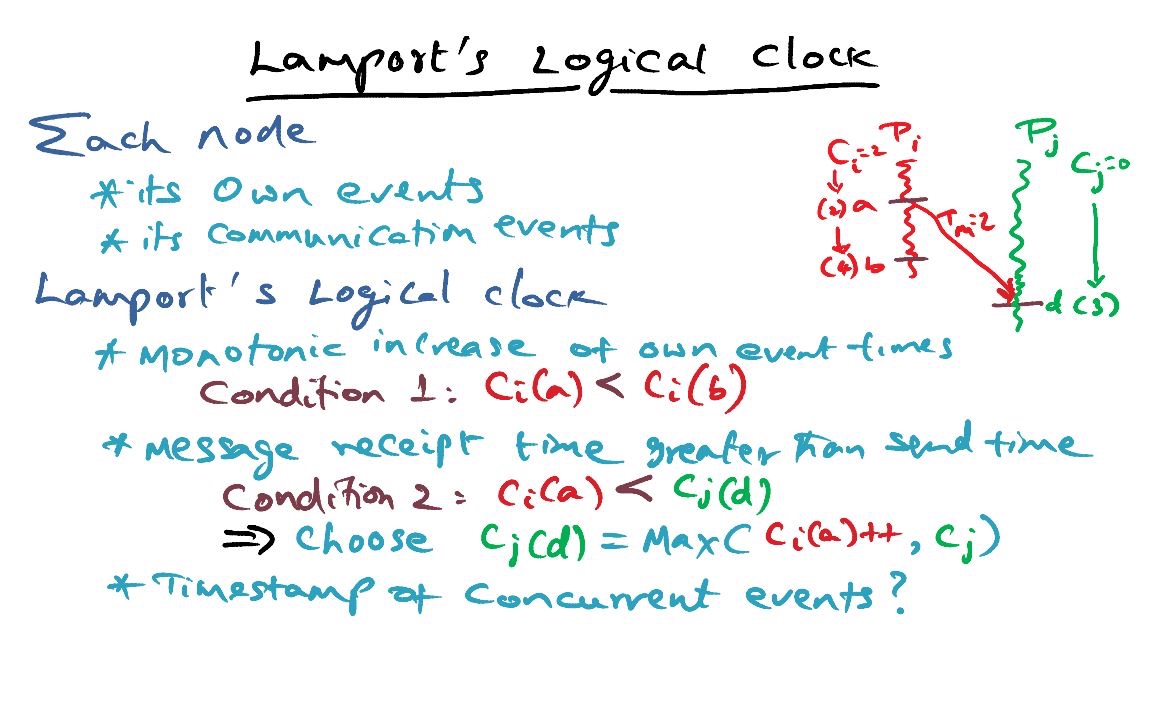 Lamport's Logical Clock
Each node
* its own events
* its communication events
Lamport's Logical clock
* Monotonic increase of own event times
Condition 1: Ci(a) < Ci(b)
* message receipt time greater than send time
Condition 2: Ci(a) < Cj(d)
⇒ choose Cj(d) = Max( Ci(a)++, Cj)
* Timestamp of concurrent events?
Pi
Ci=2
(2) a
(4) b
Tm=2
Pj
Cj=0
d (3)